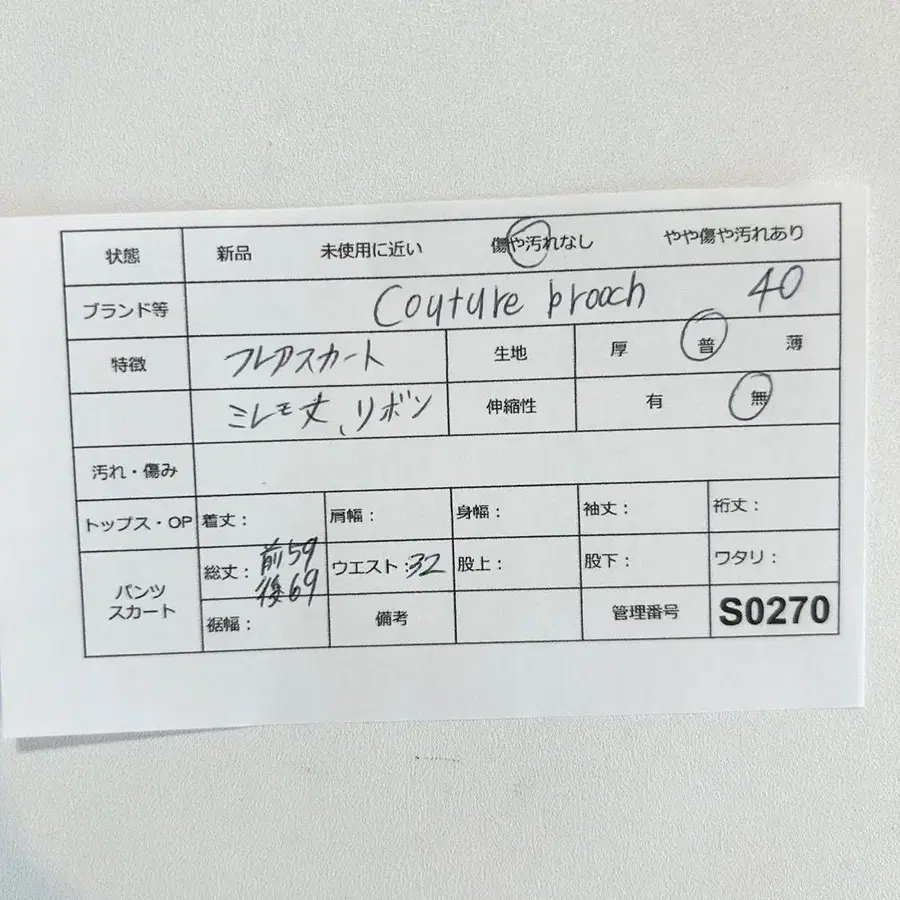 状態 新品 未使用に近い 傷や汚れなし やや傷や汚れあり
ブランド等 Couture brooch 40
特徴 フレアスカート 生地 厚 普 薄
ミレモ丈、リボン 伸縮性 有 無
汚れ・傷み
トップス・OP 着丈: 肩幅: 身幅: 袖丈: 裄丈:
パンツ スカート 総丈: 前59 後69 ウエスト:32 股上: 股下: ワタリ:
裾幅: 備考 管理番号 S0270